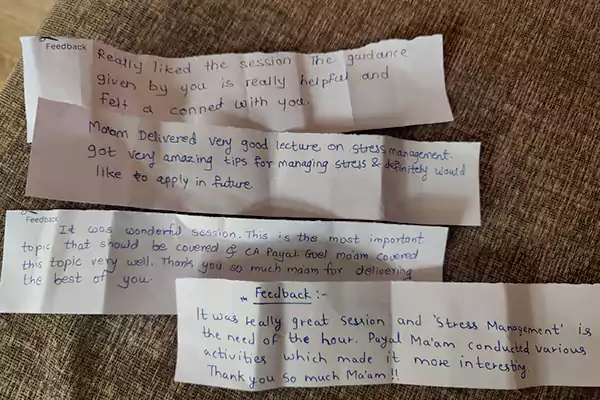 Feedback
Really liked the session The guidance
given by you is really helpful and
felt a conned with you.
Ma'am Delivered very good lecture on stress management.
got very amazing tips for managing stress & definitely would
like to apply in future.
Feedback
It was wonderful session. This is the most important
topic that should be covered & CA Payal Goel ma'am covered
this topic very well. Thank you so much maam for delivering
the best of you.
* Feedback :-
It was really great session and 'Stress Management' is
the need of the hour. Payal Ma'am conducted various
activities which made it more interesting.
Thank you so much Ma'am !!